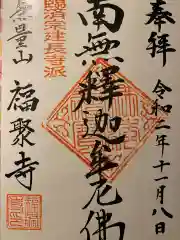 奉拝
令和二年十一月八日
南無釋迦牟尼佛
臨済宗建長寺派
無量山
福聚寺